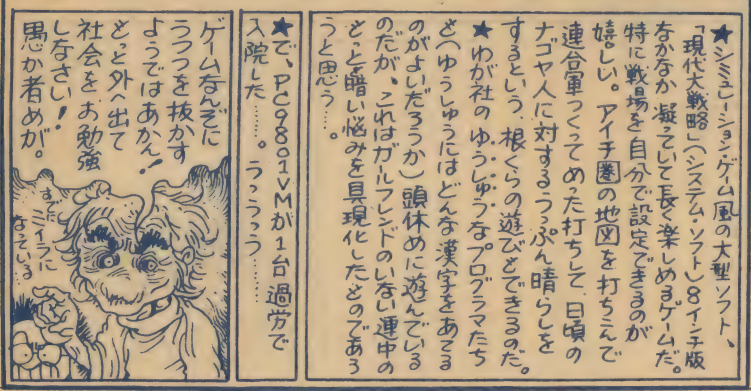 ★シミュレーション・ゲーム風の大型ソフト、
「現代大戦略」(システム・ソフト)8インチ版
なかなか凝っていて長く楽しめるゲームだ。
特に戦場を自分で設定できるのが
嬉しい。アイチ圏の地図を打ちこんで
連合軍つくってめった打ちして、日頃の
ナゴヤ人に対するうっぷん晴らしを
するという、根くらの遊びもできるのだ。
★わが社のゆうしゅうなプログラマたち
も(ゆうしゅうにはどんな漢字をあてる
のがよいだろうか)頭休めに遊んでいる
のだが、これはガールフレンドのいない連中の
もっと暗い悩みを具現化したものであろ
うと思う…。
★で、PC9801VMが1台過労で
入院した……。うっうっう………
ゲームなんぞに
うつつを抜かす
ようではあかん!
もっと外へ出て
社会をお勉強
しなさい!
愚か者めが。
すでに
ミイラに
なっている